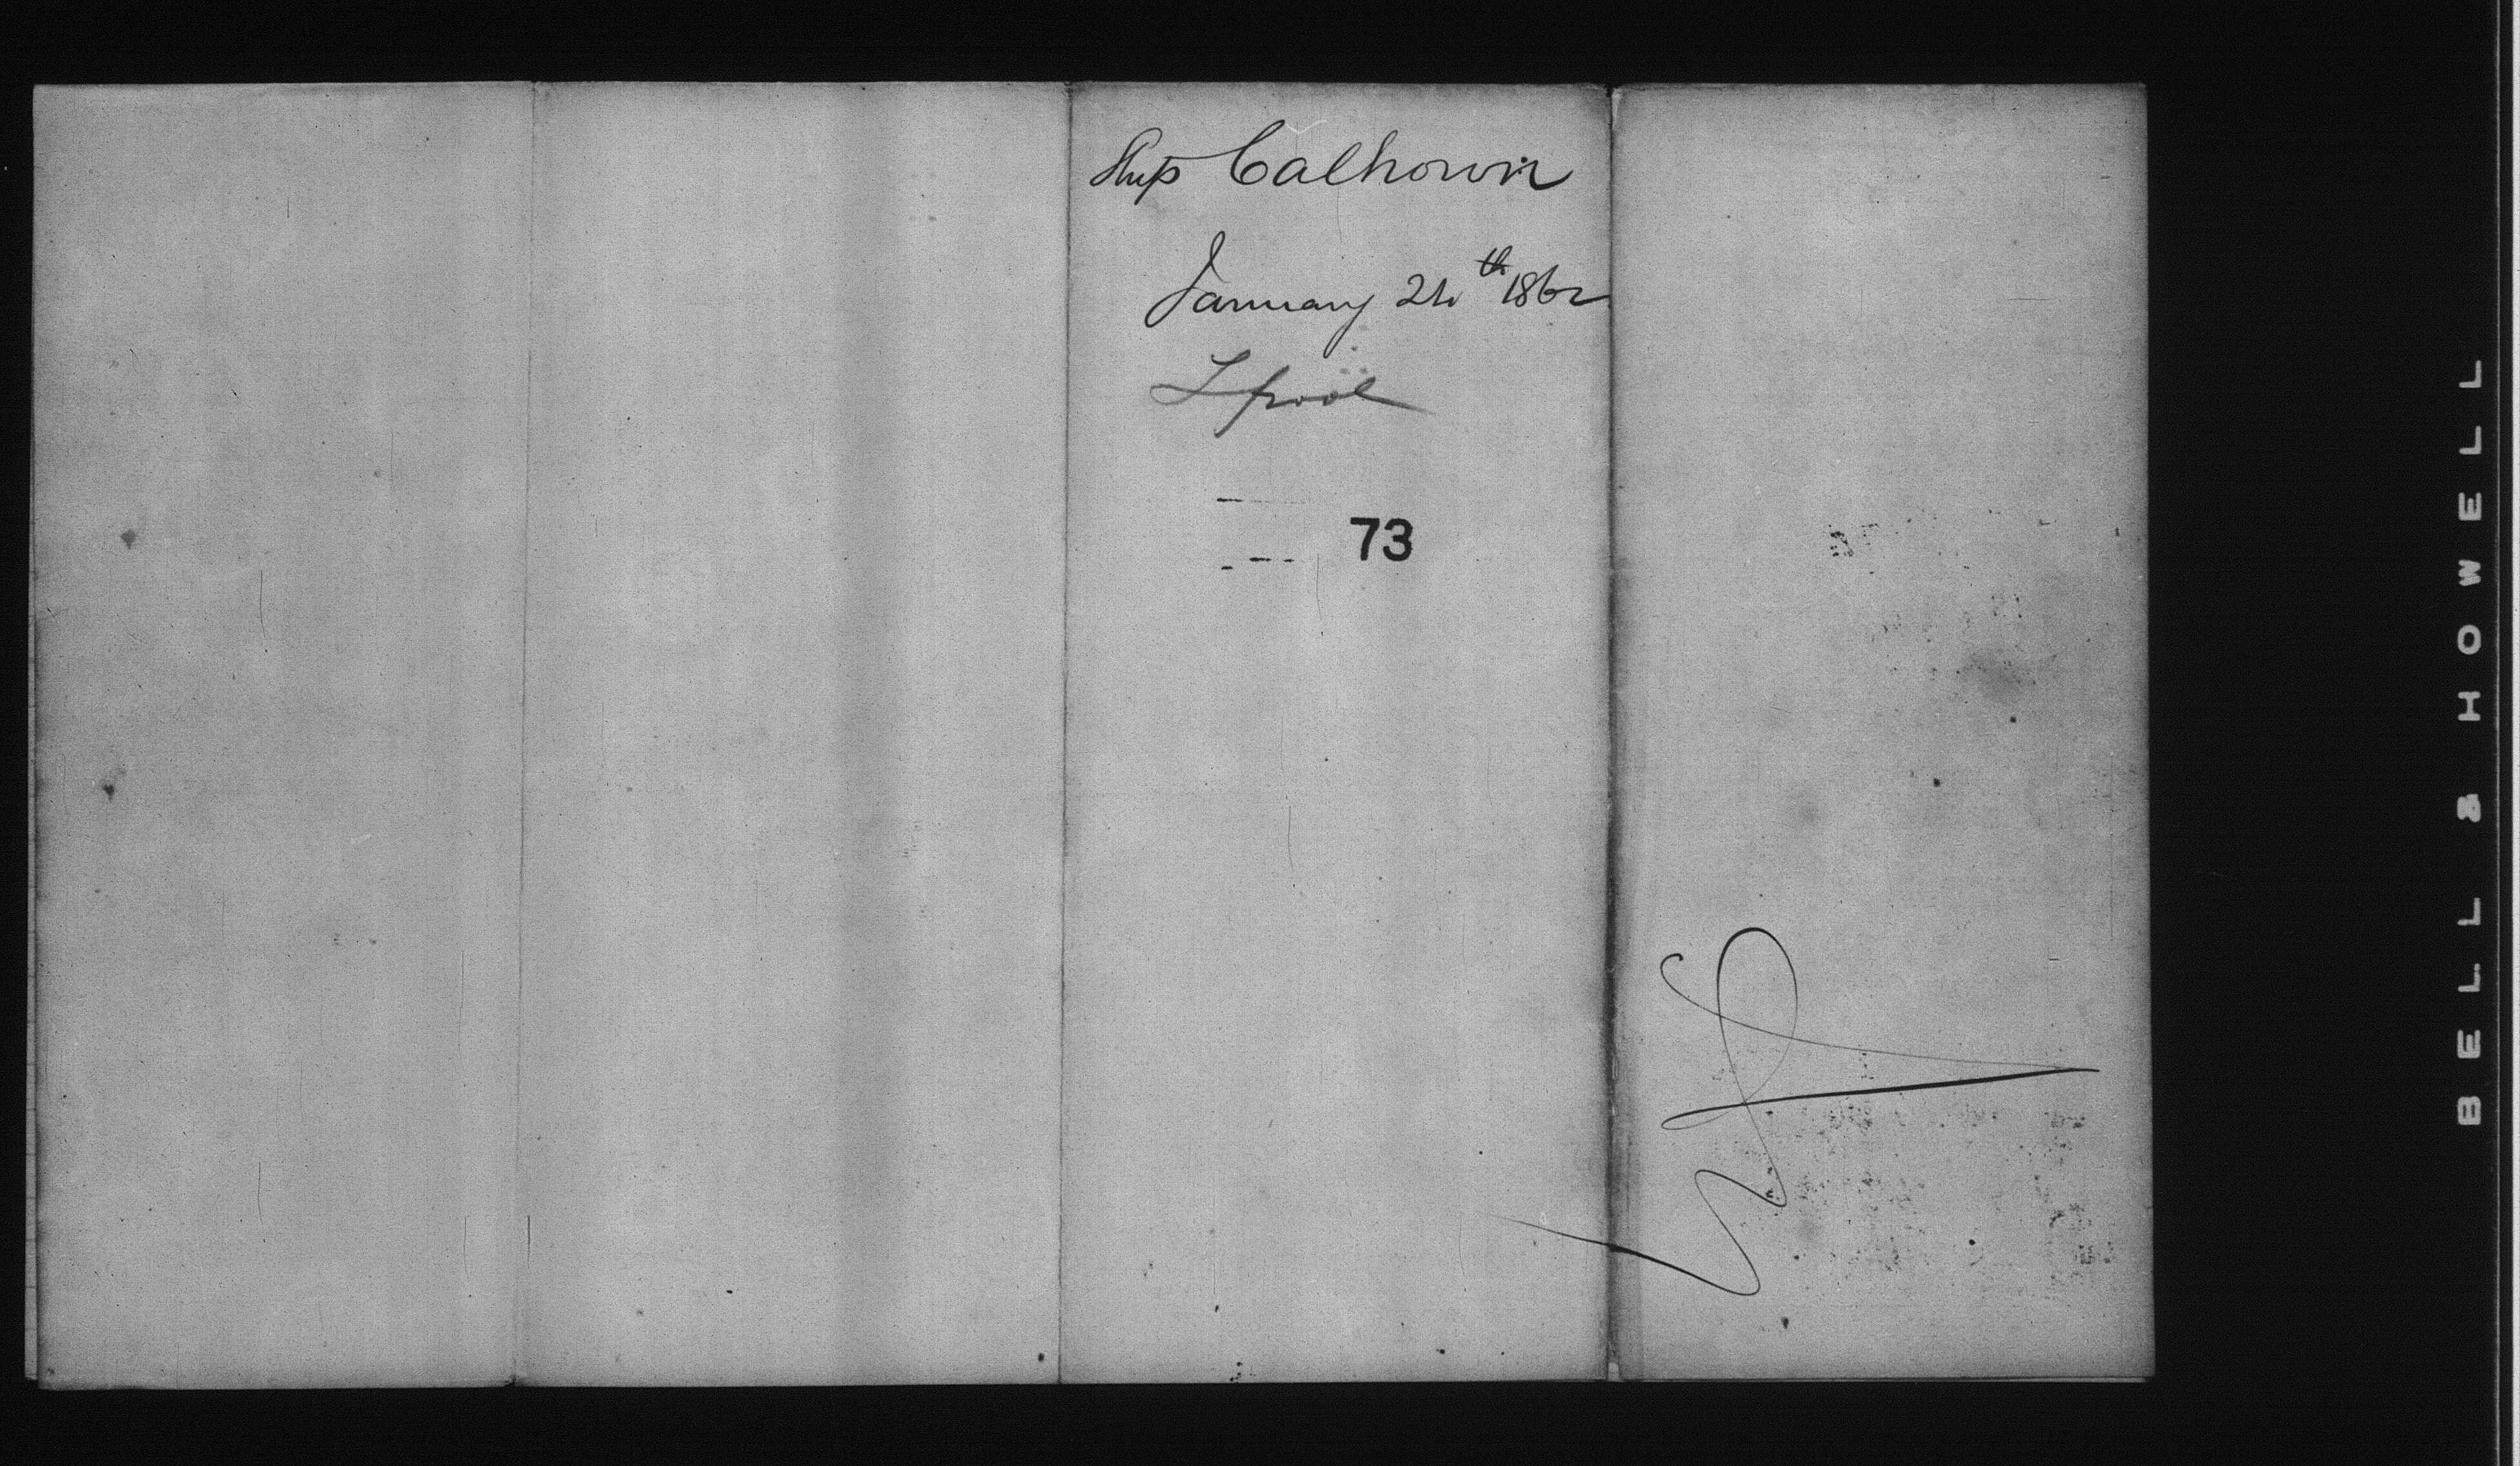 Ship Calhoun
January 24th 1862
Lpool
73
BELL & HOWELL